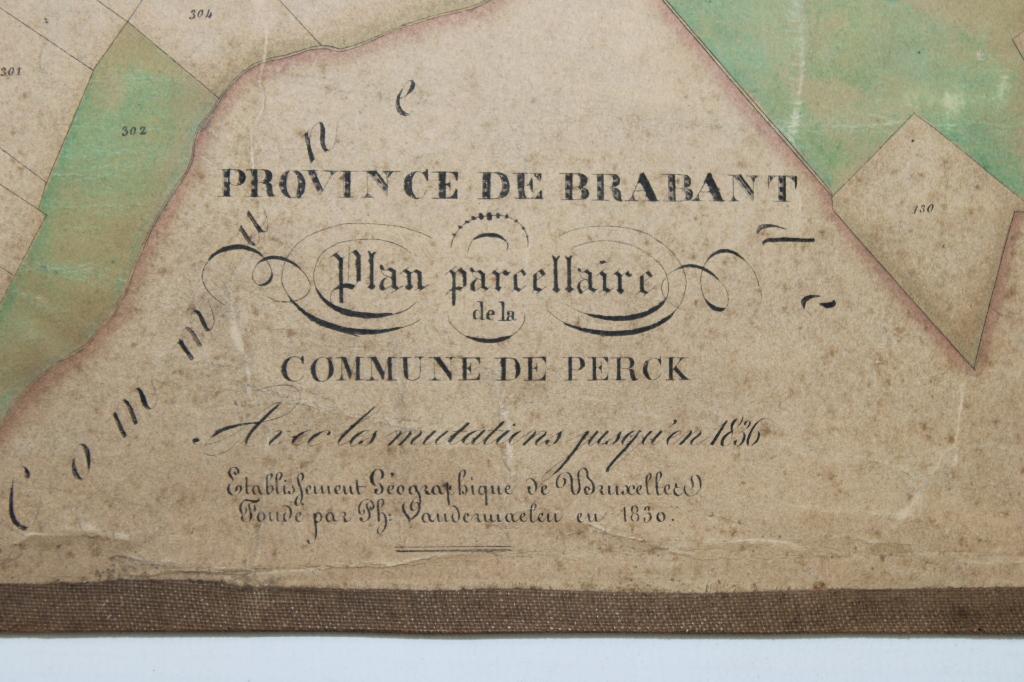 304
301
302
Commune
PROVINCE DE BRABANT
130
Plan parcellaire
de la
COMMUNE DE PERCK
Avec les mutations jusqu'en 1836
Etablissement Géographique de Bruxelles
Fondé par Ph: Vandermaelen en 1830.